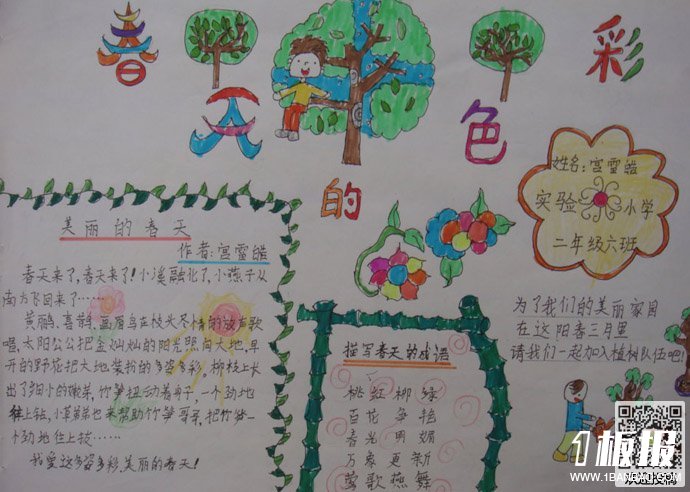 春天的色彩
美丽的春天
作者:宫雪皓
春天来了,春天来了!小溪融化了,小燕子从
南方飞回来了……
黄鹂、喜鹊、画眉鸟声枝头尽情的放声歌
唱,太阳公公把金灿灿的阳光照向大地,早
开的野花把大地装扮的多姿多彩。柳枝上长
出了细小的嫩芽,竹笋扭动着身子,一个劲地
往上钻,小草弟弟也来帮助竹笋哥哥,把竹笋一
个劲地往上拔……
我爱这多姿多彩、美丽的春天!
描写春天的成语
桃红柳绿
百花争艳
春光明媚
万象更新
莺歌燕舞
姓名:宫雪皓
实验小学
二年级六班
为了我们的美丽家园
在这阳春三月里
请我们一起加入植树队伍吧!
1板报
WWW.1BANBAO.COM